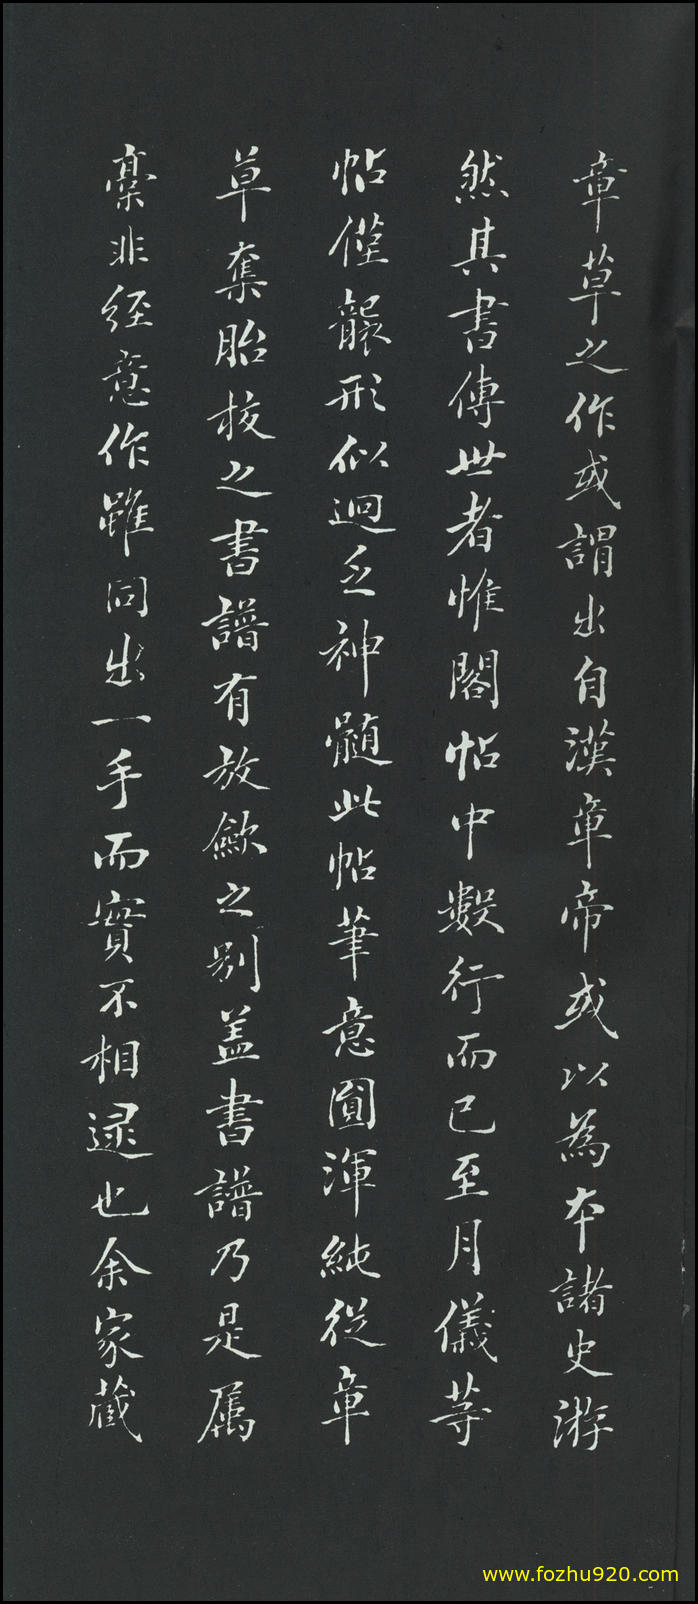 章草之作或謂出自漢章帝或以為本諸史游
然其書傳世者惟閣帖中數行而已至月儀等
帖僅襲形似迥乏神髓此帖筆意圓渾純從章
草奪胎校之書譜有放歛之別盖書譜乃是屬
稾非經意作雖同出一手而實不相逮也余家藏
www.fozhu920.com